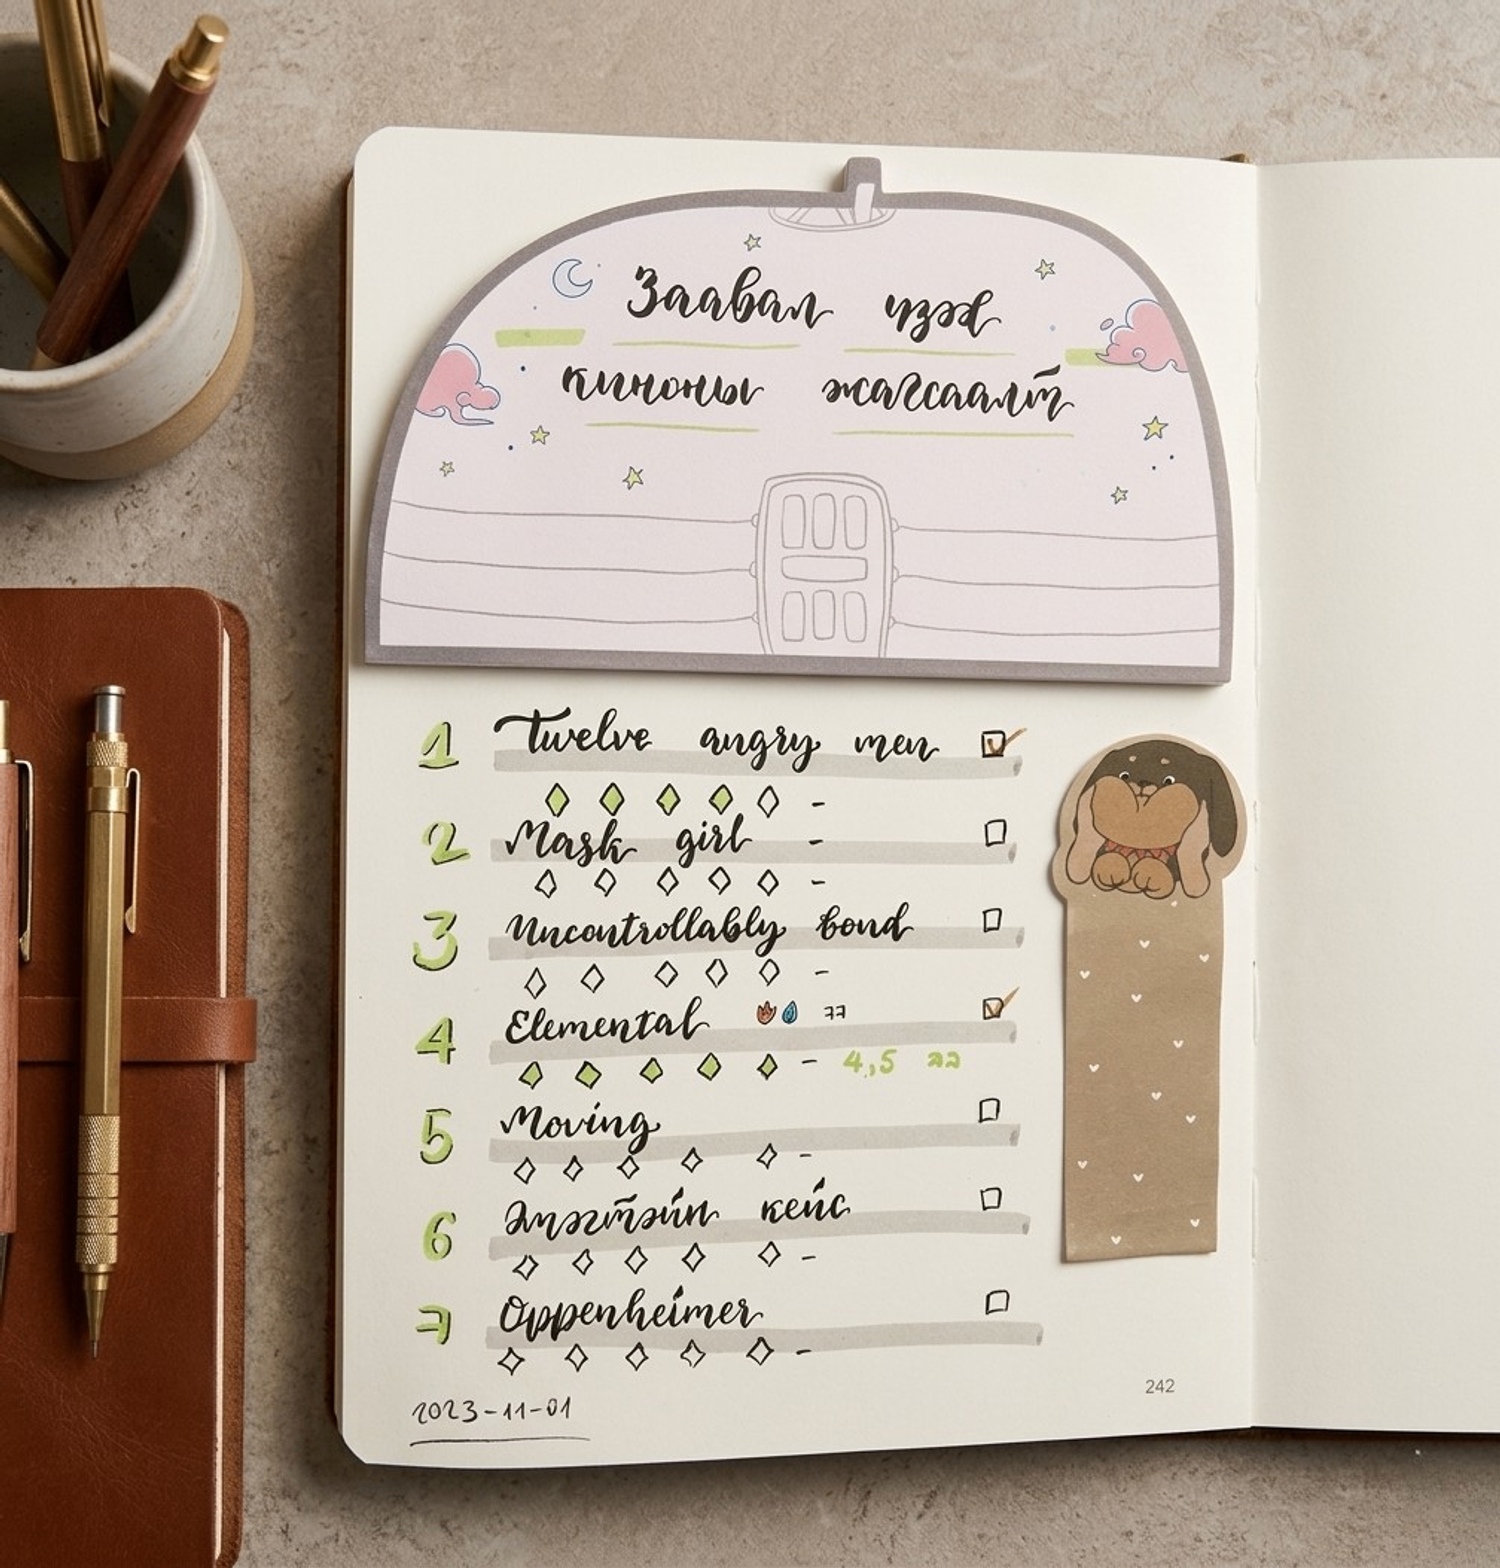 Заавал үзэх
киноны жагсаалт
1 Twelve angry men
-
2 Mask girl -
-
3 Uncontrollably bond
-
4 Elemental 77
- 4,5
5 Moving
-
6 Эпэгтэйн кейс
-
7 Oppenheimer
-
2023-11-01
242